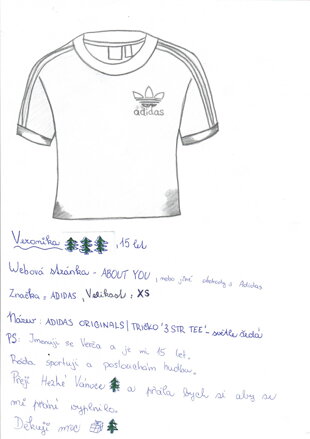 adidas
Veronika, 15 let
Webová stránka - ABOUT YOU, nebo jiné obchody s Adidas
Značka: ADIDAS, Velikost: XS
Název: ADIDAS ORIGINALS | TRIČKO '3 STR TEE' - světle šedá
PS: Jmenuji se Verča a je mi 15 let.
Ráda sportuji a poslouchám hudbu.
Přeji Hezké Vánoce a přála bych si aby se
mé přání vyplnilo.
Děkuji moc